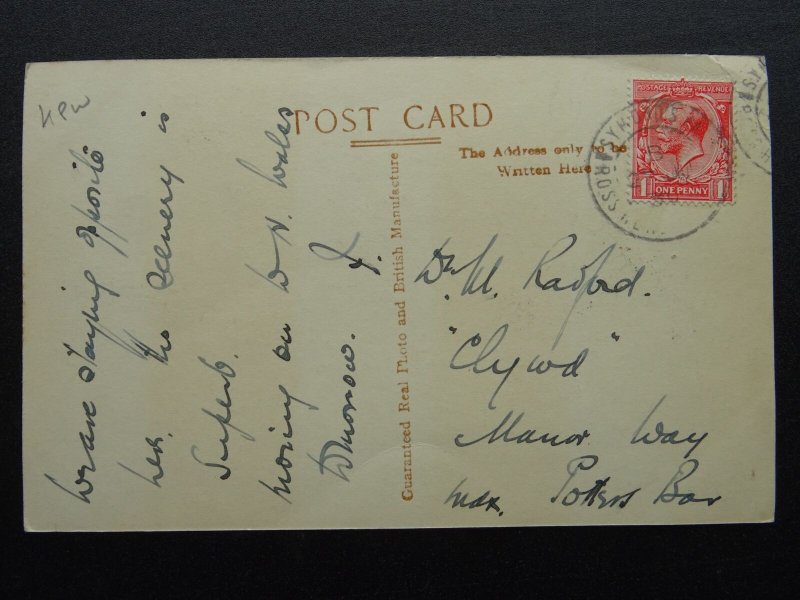 KPW
POST CARD
The Address only to be
Written Here
POSTAGE REVENUE
1 ONE PENNY 1
We are staying opposite
her. the scenery is
superb.
moving on to N. Wales
tomorrow. J.
Guaranteed Real Photo and British Manufacture
Dr. M. Radford.
"Clywd"
Manor Way
Potters Bar
Mdx.